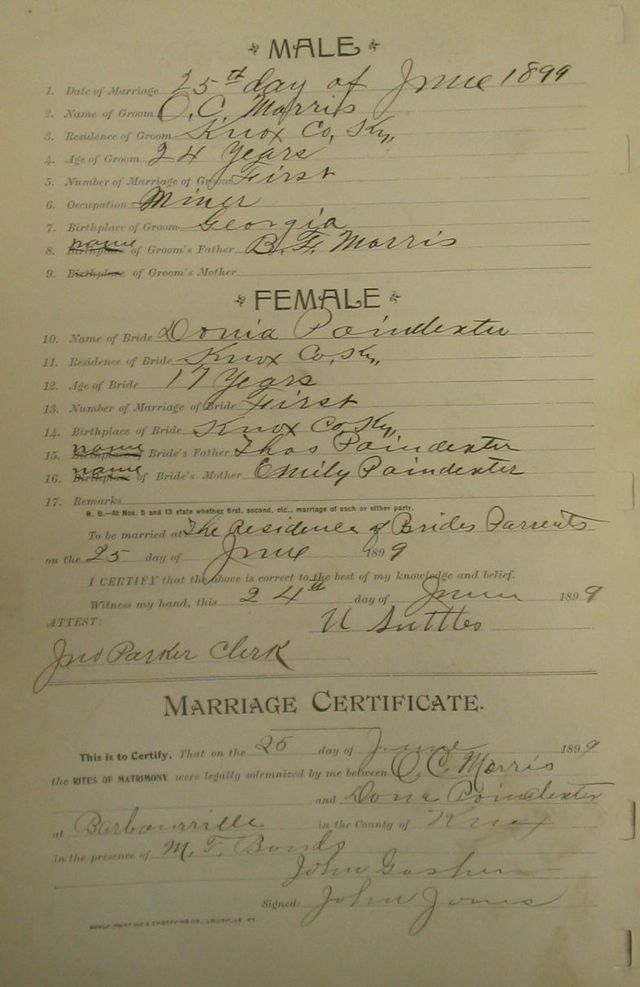 MALE
1. Date of Marriage 25th day of June 1899
2. Name of Groom O. C. Morris
3. Residence of Groom Knox Co, Ky,
4. Age of Groom 24 Years
5. Number of Marriage of Groom First
6. Occupation Miner
7. Birthplace of Groom Georgia
8. Birthplace name of Groom's Father B. F. Morris
9. Birthplace of Groom's Mother
FEMALE
10. Name of Bride Donia Poindexter
11. Residence of Bride Knox Co, Ky,
12. Age of Bride 17 Years
13. Number of Marriage of Bride First
14. Birthplace of Bride Knox Co, Ky,
15. Birthplace name of Bride's Father Thos Poindexter
16. Birthplace name of Bride's Mother Emily Poindexter
17. Remarks
N. B.—At Nos. 5 and 13 state whether first, second, etc., marriage of each or either party.
To be married at The Residence of Brides Parrents
on the 25 day of June 1899
I CERTIFY that the above is correct to the best of my knowledge and belief.
Witness my hand, this 24th day of June 1899
ATTEST: Suttles
Jno Parker Clerk
MARRIAGE CERTIFICATE.
This is to Certify, That on the 25 day of June 1899
the RITES OF MATRIMONY were legally solemnized by me between O. C. Morris
and Dona Poindexter
at Barbourville in the County of Knox
in the presence of M. F. Bonds
John
Signed: John Jones